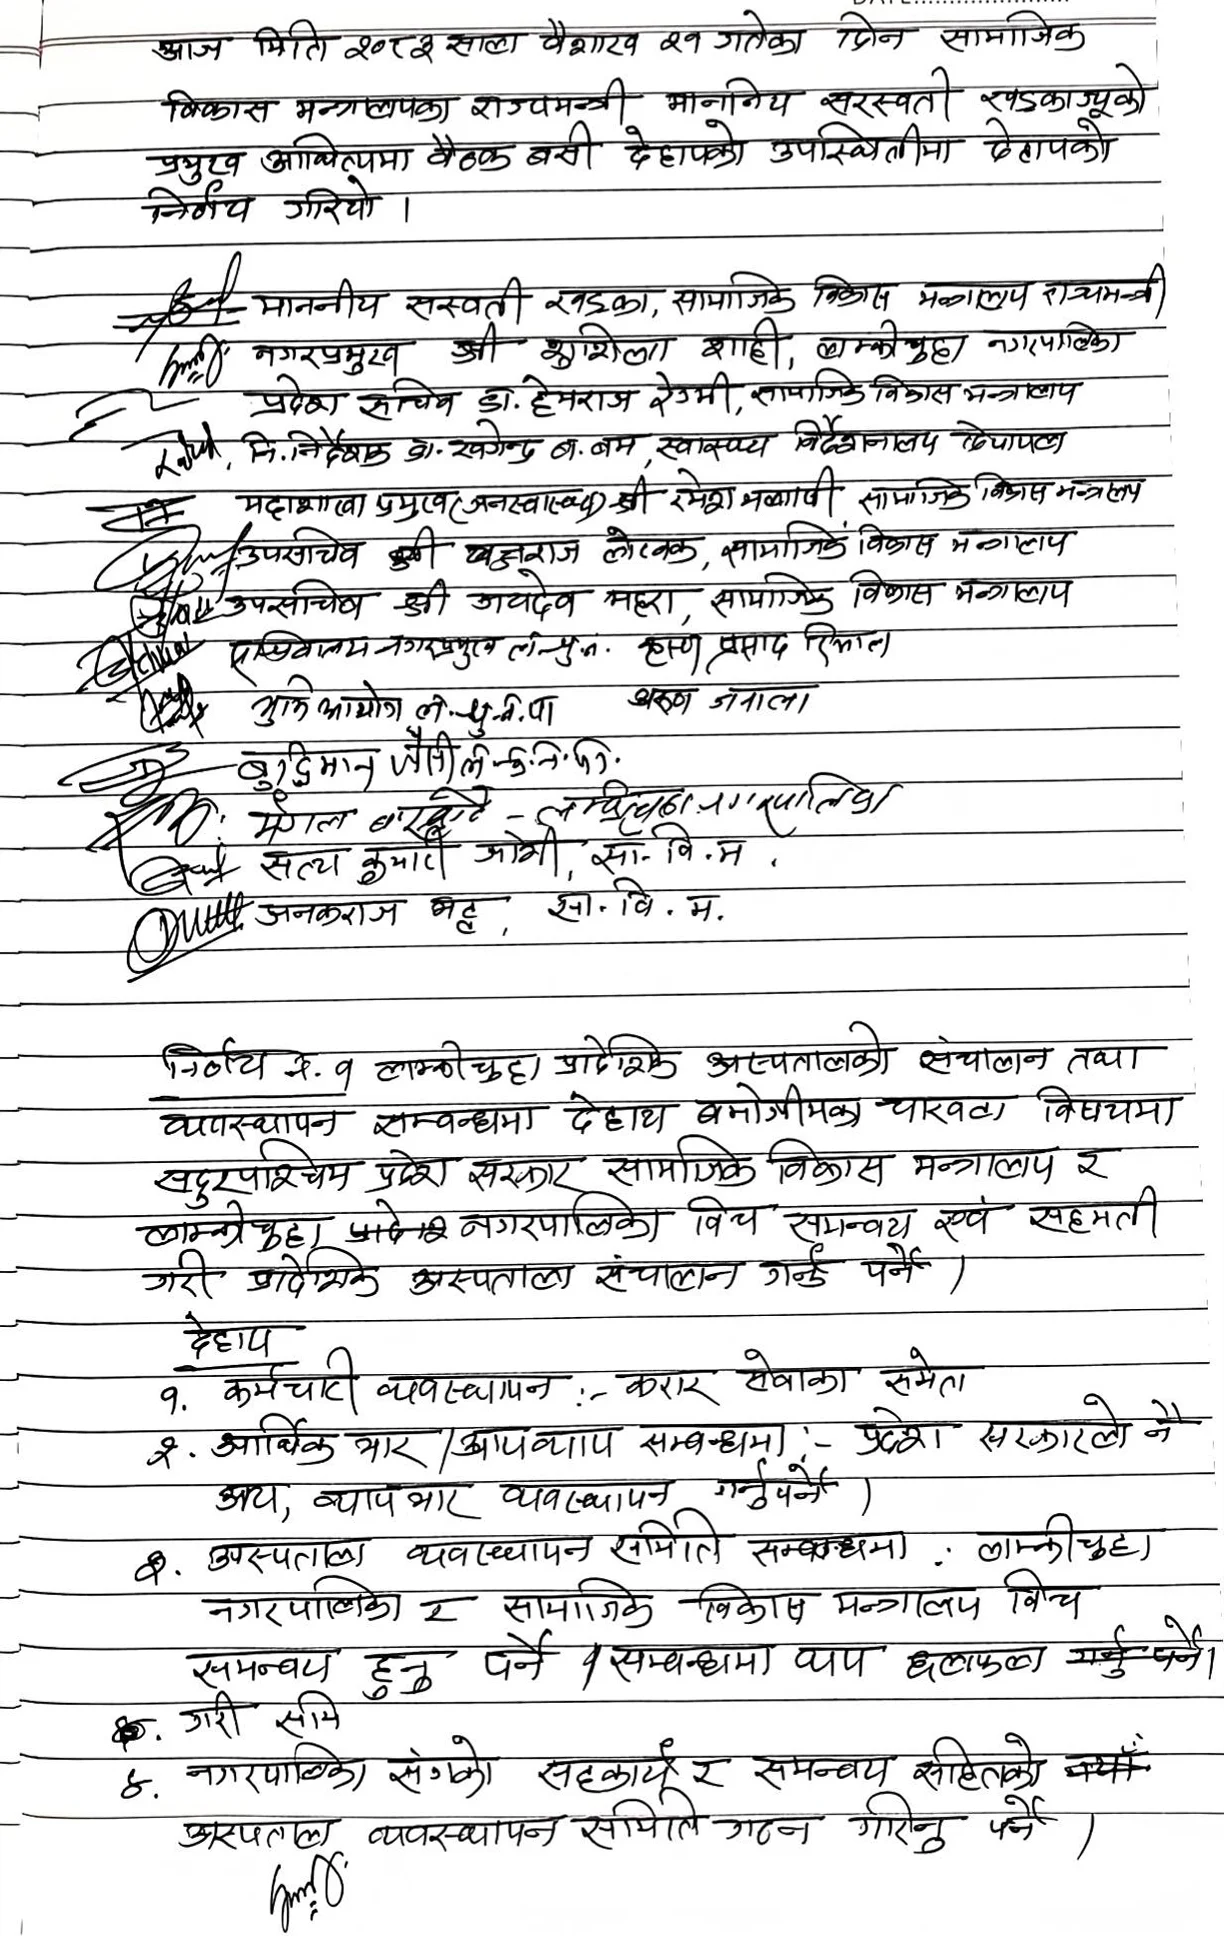 आज मिति २०८२ साल वैशाख २१ गतेका दिन सामाजिक
विकास मन्त्रालयका राज्यमन्त्री माननिय सरस्वती खडकाज्यूको
प्रमुख आथित्यमा वैठक बसी देहायको उपस्थितीमा देहायको
निर्णय गरियो ।
माननीय सस्वती खडका, सामाजिक विकास मन्त्रालय राज्यमन्त्री
नगरप्रमुख श्री शुशिला शाही, लाम्कीचुहा नगरपालिका
प्रदेश सचिव डा. हेमराज रेग्मी, सामाजिक विकास मन्त्रालय
नि.निर्देशक डा. खगेन्द्र ब. बम, स्वास्थ्य निर्देशनालय दिपायल
महाशाखा प्रमुख (जनस्वास्थ्य) श्री रमेश मल्लासी सामाजिक विकास मन्त्रालय
उपसचिव श्री यज्ञराज, सामाजिक विकास मन्त्रालय
उपसचिव श्री जयदेव महरा, सामाजिक विकास मन्त्रालय
नगरप्रमुख कृष्ण प्रसाद
भुमि आयोग ल.चु.न.पा
बुद्धिमान
मंगल नगरपालिका
सत्य कुमारी जोशी, सा. वि. म.
जनकराज भट्ट, सा. वि. म.
निर्णय नं. १ लाम्कीचुहा प्रादेशिक अस्पतालको संचालन तथा
व्यवस्थापन सम्वन्धमा देहाय बमोजीमका चारवटा विषयमा
सदुरपाश्चिम प्रदेश सरकार सामाजिक विकास मन्त्रालय र
लाम्कीचुहा नगरपालिका विच समन्वय एवं सहमती
गरी प्रादेशिक अस्पताल संचालन गर्नु पर्ने ।
देहाय
१. कर्मचारी व्यवस्थापन :- करार सेवाका समेत
२. आर्थिक भार / आयव्याय सम्बन्धमा :- प्रदेश सरकारले नै
अय, व्यायभार व्यवस्थापन गर्नुपर्ने ।
३. अस्पताल व्यवस्थापन समिति सम्बन्धमा : लाम्कीचुहा
नगरपालिका र सामाजिक विकास मन्त्रालय विच
समन्वय हुनु पर्ने सम्वन्धमा थप छलफल गर्नु पर्ने।
गरी समि
४. नगरपालिका संगको सहकार्य र समन्वय सहितको
अस्पताल व्यवस्थापन समिति गठन गरिनु पर्ने ।